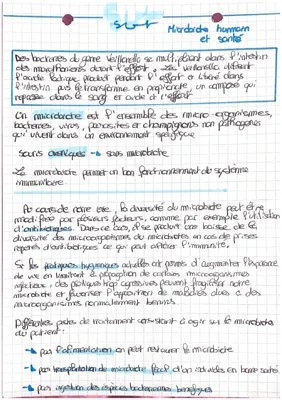 SVT
Microbiote humain
et santé
Des bactéries du genre Veillonella se multiplient dans l'intestin
des marathoniens durant l'effort, Veillonella utilisent
l'acide lactique produit pendant l'effort et libéré dans
l'intestin puis le transforme en propionate, un composé qui
repasse dans le sang et aide à l'effort
On microbiote est l'ensemble des micro-organismes,
bactéries, virus, parasites et champignons non pathogènes
qui vivent dans un environnement spécifique
Souris axéniques → sans microbiote
Le microbiote permet un bon fonctionnement du système
immunitaire
Au cours de notre vie, la diversité du microbiote peut être
modifiée par plusieurs facteurs, comme par exemple l'utilisation
d'antibiotiques. Dans ce cas, il se produit une baisse de la
diversité des microorganismes du microbiote en cas de prises
répétées d'antibiotiques ce qui peut affecter l'immunité.
Si les pratiques hygiéniques actuelles ont permis d'augmenter l'espérance
de vie en limitant la propagation de certains microorganismes
infectieux, des pratiques trop agressives peuvent fragiliser notre
microbiote et favoriser l'apparition de maladies dues à des
microorganismes normalement bénins.
Différentes pistes de traitement consistant à agir sur le microbiote
du patient:
→ par l'alimentation on peut restaurer le microbiote
→ par transplantation de microbiote fécal d'un individu en bonne santé
→ par ingestion des espèces bactériennes bénéfiques